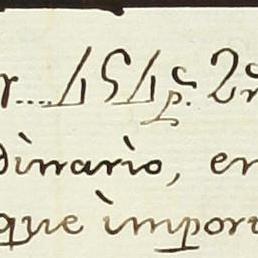 r....454ps. 2r
dinario, en
que impor